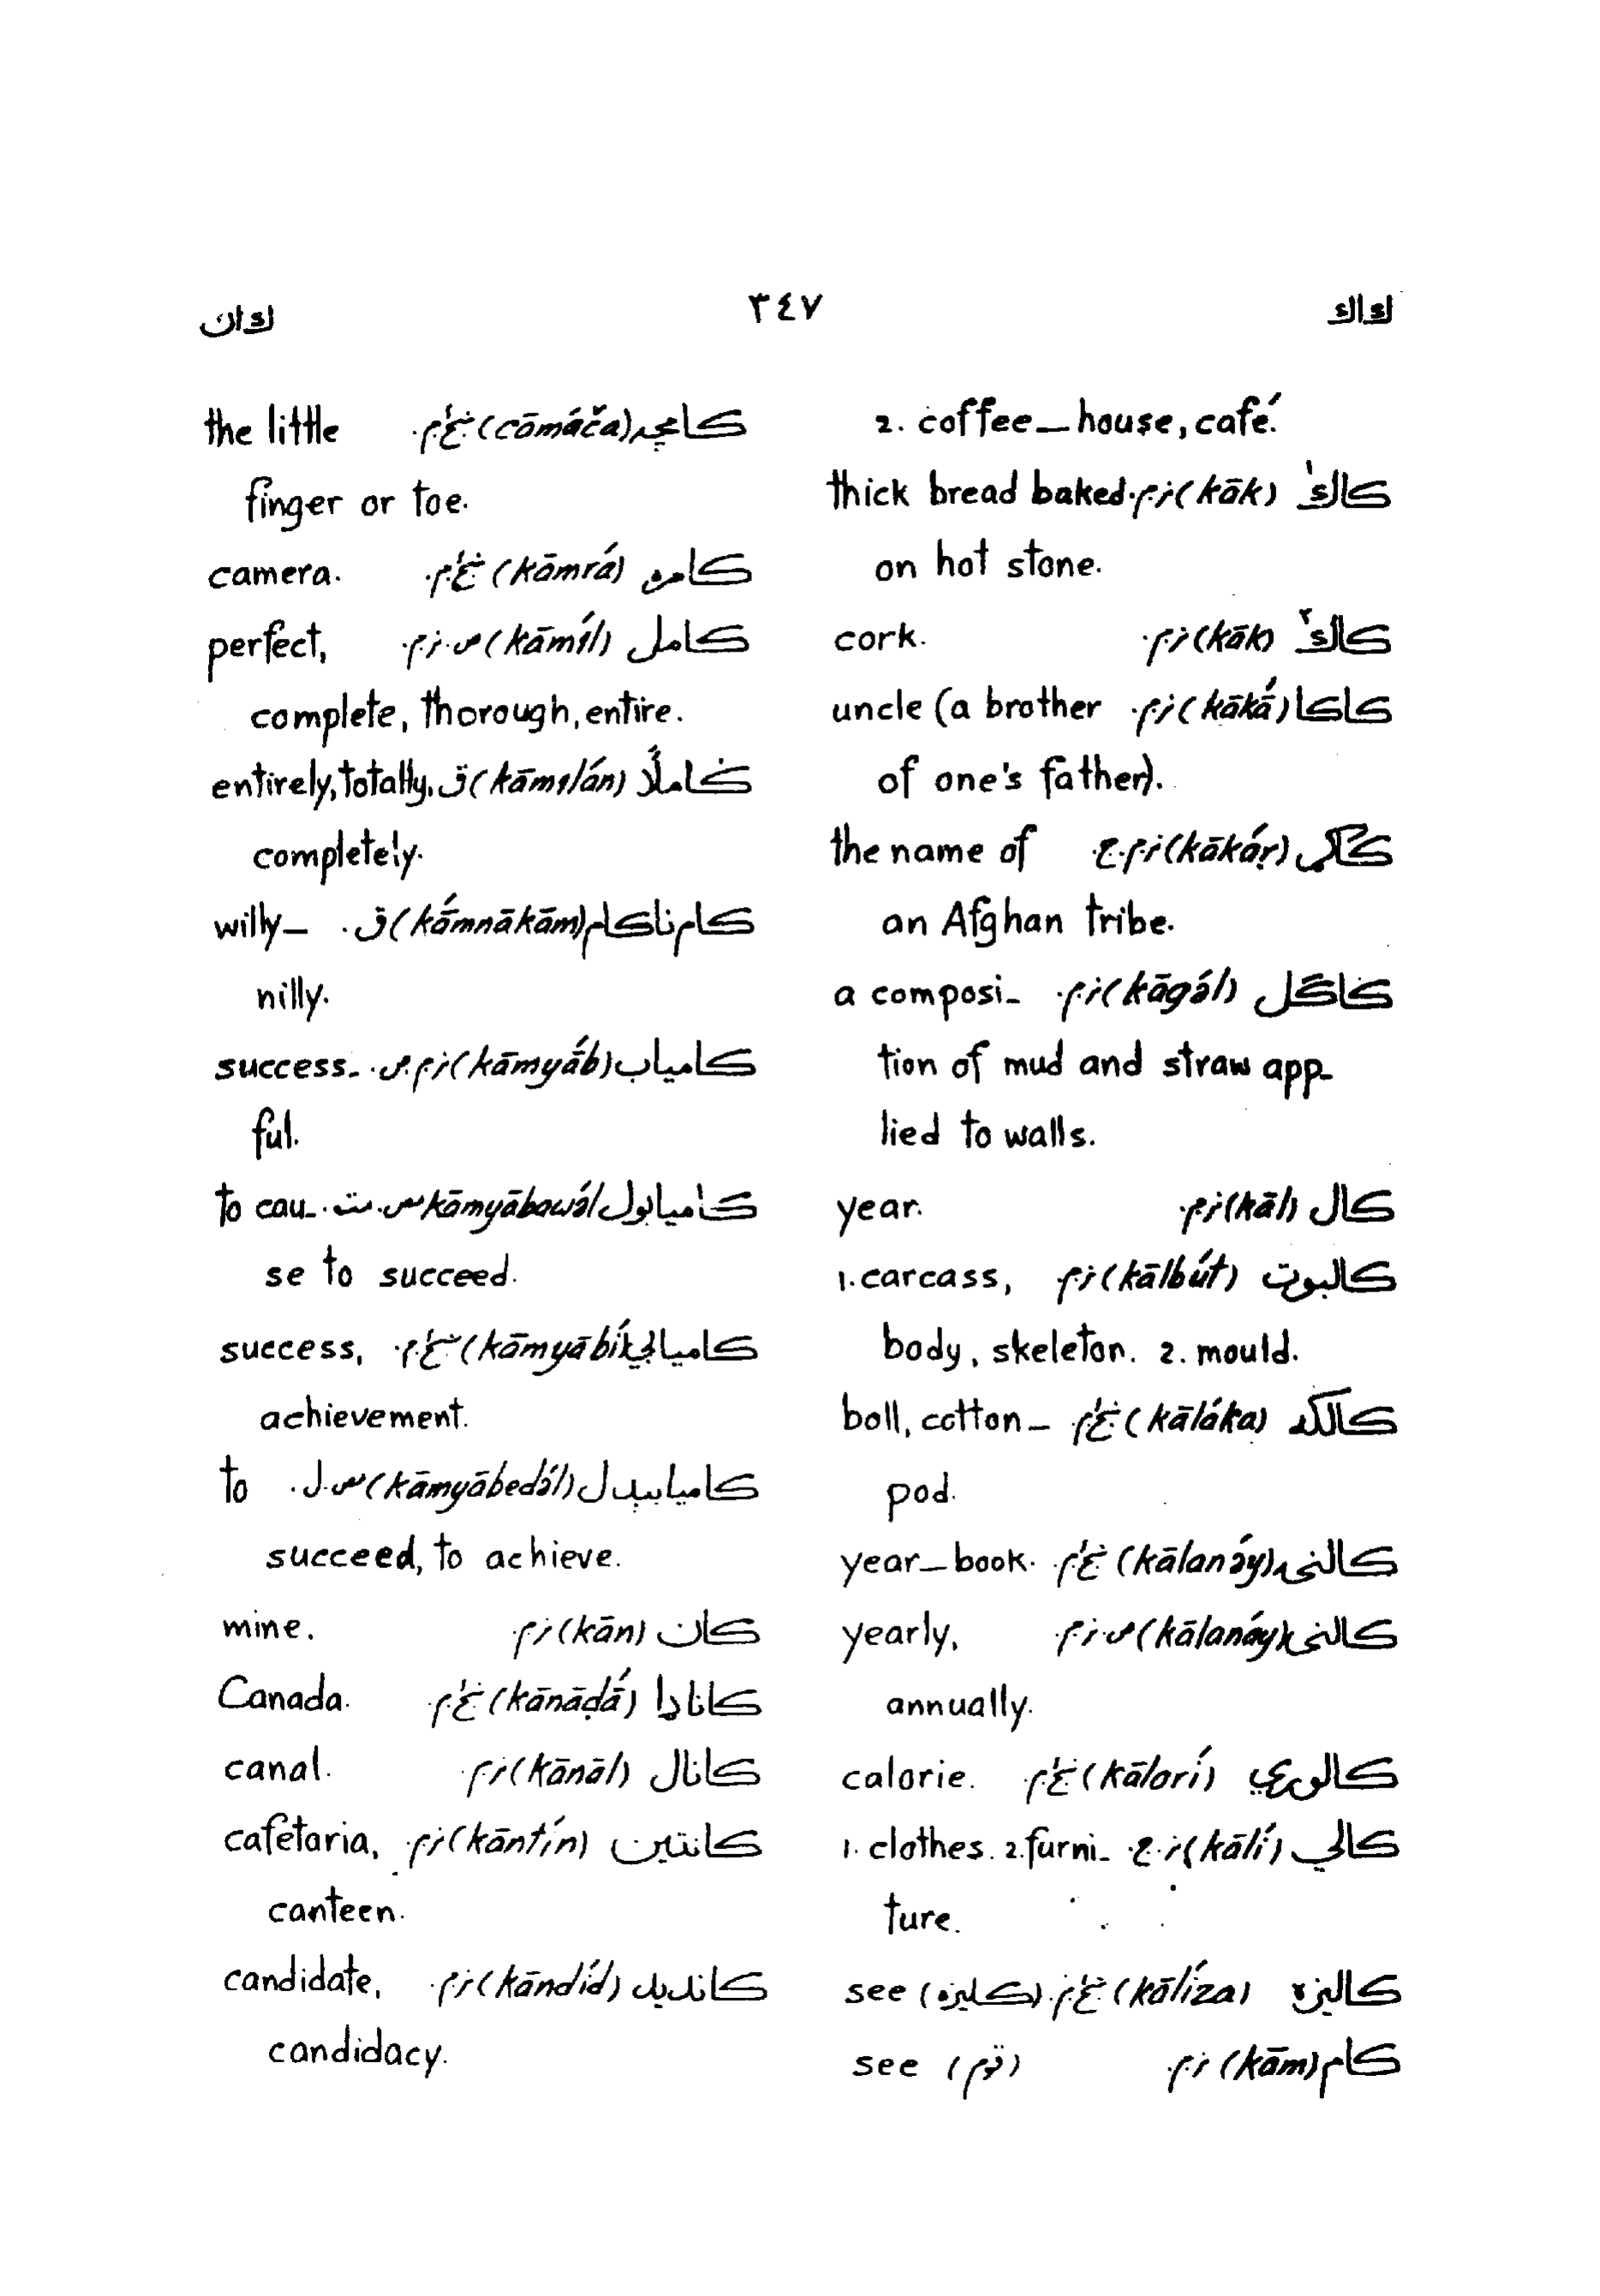 كاك
٣٤٧
كان
2. coffee_house, café.
كاك١ (kāk) thick bread baked
on hot stone.
كاك٢ (kāk) cork.
كاكا (kākā́) uncle (a brother
of one's father).
(kākáṛ) the name of
an Afghan tribe.
كاګل (kāgə́l) a composi_
tion of mud and straw app_
lied to walls.
كال (kāl) year.
كالبوت (kālbút) 1. carcass,
body, skeleton. 2. mould.
كالكه (kāláka) boll, cotton_
pod.
كالنۍ (kālanə́y) year_book.
كالنى (kālanáy) yearly,
annually.
كالوري (kālorí) calorie.
كالي (kālí) 1. clothes. 2. furni_
ture.
كاليزه (kālíza) see (كليزه)
كام (kām) see (قوم)
كامچه (cōmáča) the little
finger or toe.
كامره (kāmrá) camera.
كامل (kāmíl) perfect,
complete, thorough, entire.
كاملاً (kāmılán) ق entirely, totally,
completely.
كام ناكام (kā́mnākām) ق. willy_
nilly.
كامياب (kāmyā́b) success_
ful.
كاميابول kāmyābawə́l to cau_
se to succeed.
كاميابي (kāmyābí) success,
achievement.
كاميابيدل (kāmyābedə́l) to
succeed, to achieve.
كان (kān) mine.
كاناډا (kānāḍā́) Canada.
كانال (kānāl) canal.
كانتين (kāntín) cafetaria,
canteen.
كانديد (kāndíd) candidate,
candidacy.